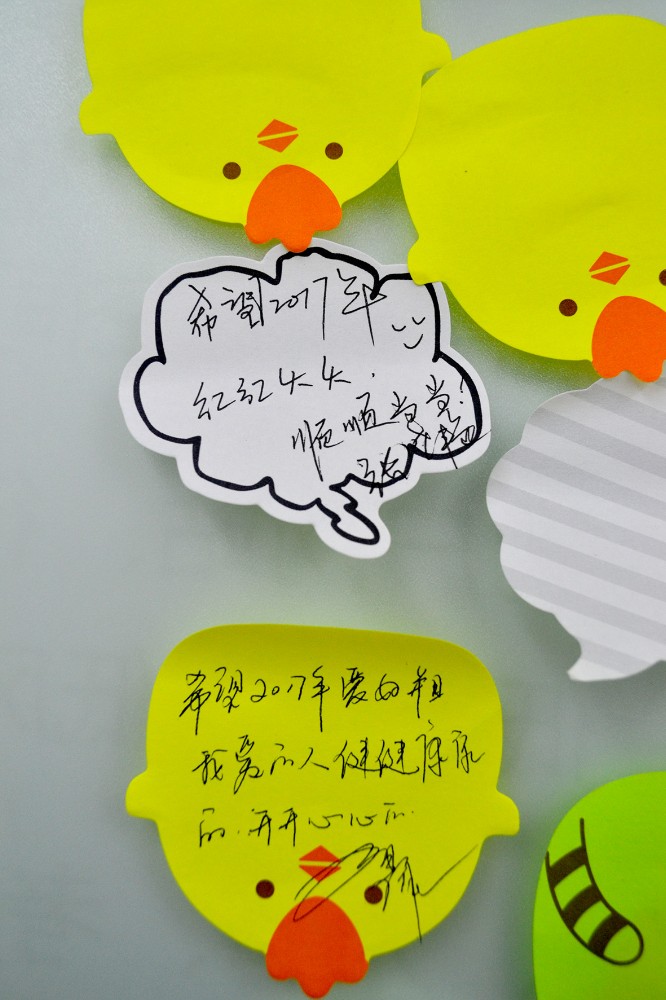 希望2017年
红红火火.
顺顺当当!
希望2017年爱我和
我爱的人健健康康
的.开开心心的.